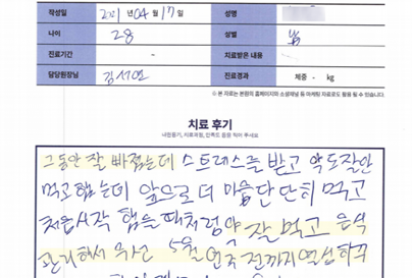 작성일 2021년 04월 17일 성명
나이 28 성별
진료기간 - 치료받은 내용 -
담당원장님 진료경과 체중 - kg
※ 본 자료는 본원의 홈페이지와 소셜채널 등 마케팅 자료로도 활용 될 수 있습니다.
치료 후기
내원동기, 치료과정, 만족도 등을 적어 주세요
그동안 잘 빠졌는데 스트레스를 받고 약도잘안
먹고했는데 앞으로 더 마음단단히 먹고
처음시작 했을때처럼 약 잘 먹고 음식
관리해서 5월 전까지 열심히